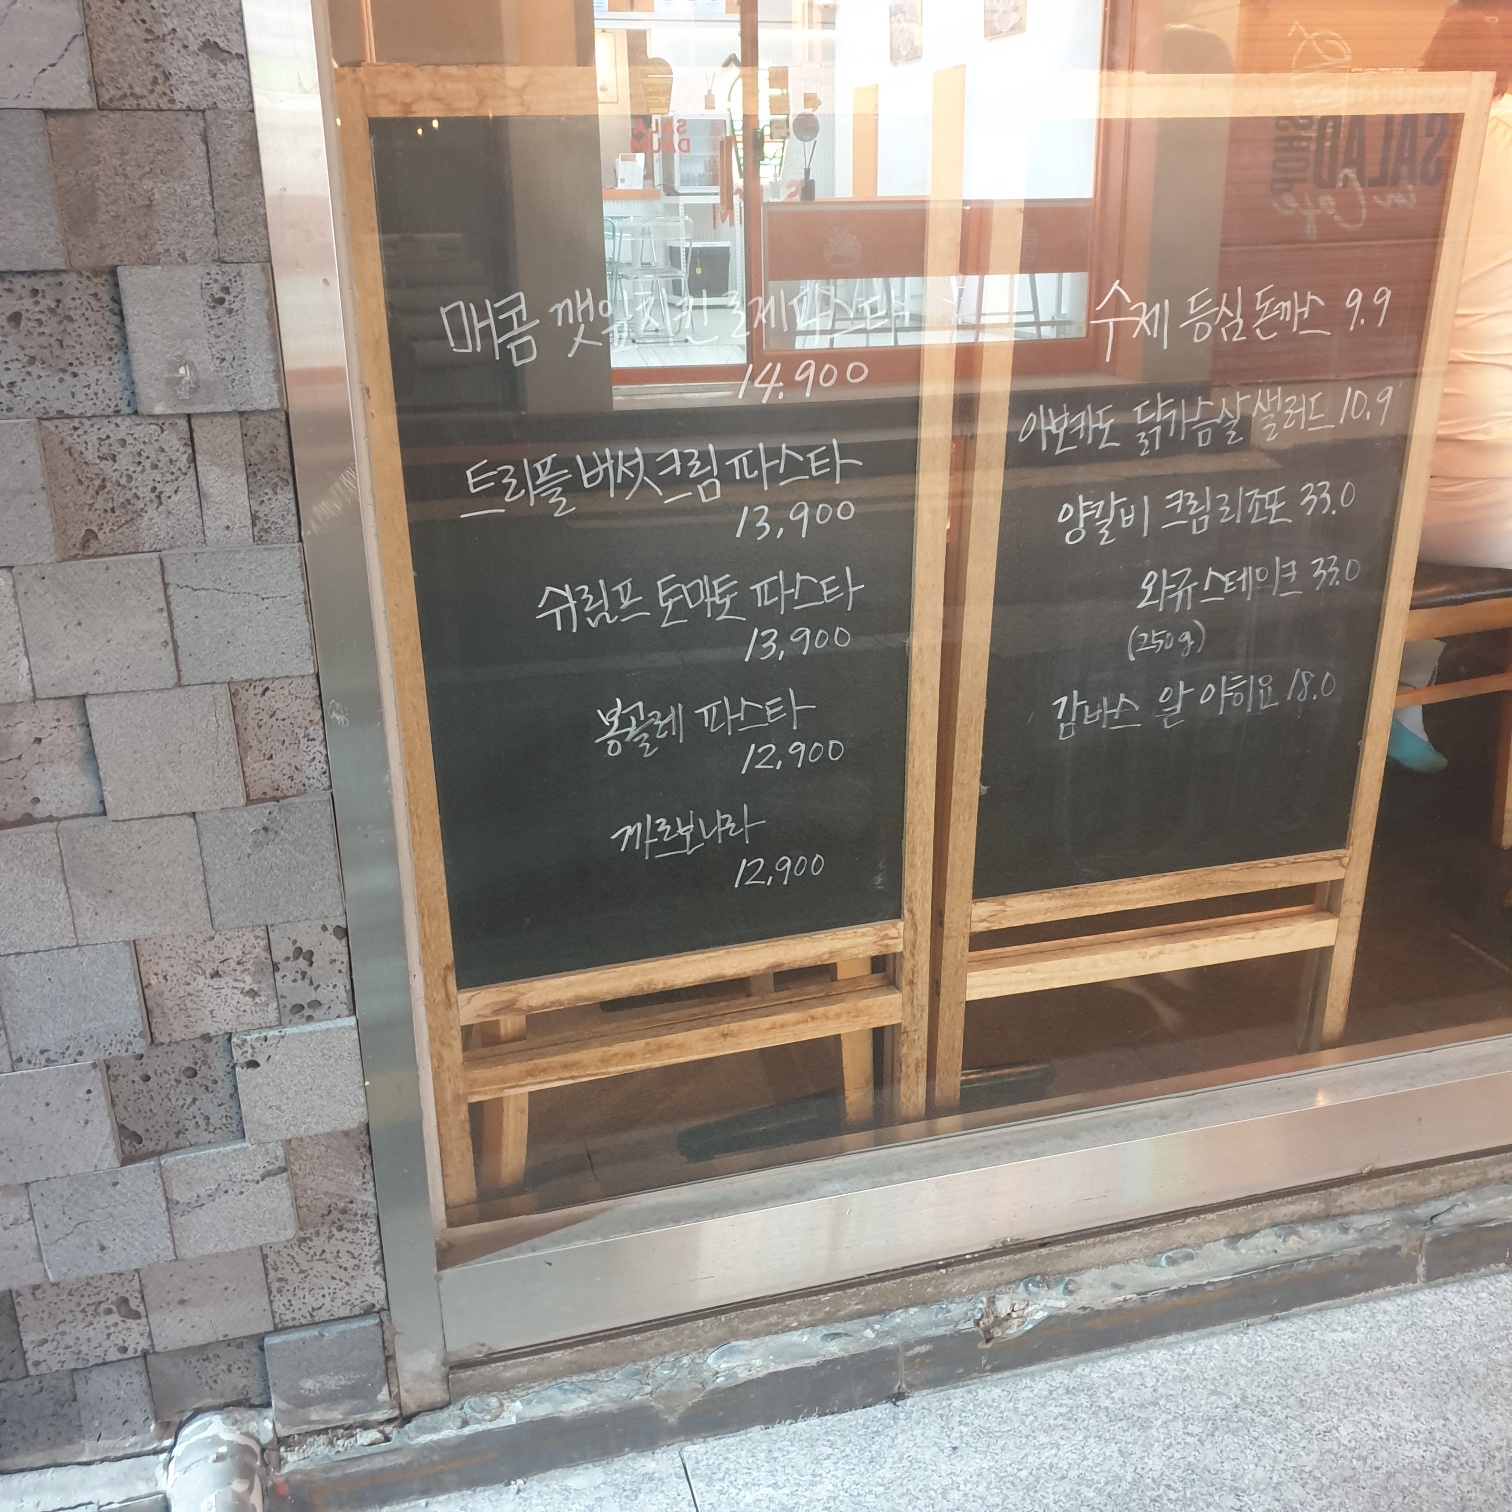 매콤 깻잎치킨 로제파스타
14.900
트리플버섯크림파스타
13,900
쉬림프 토마토 파스타
13,900
봉골레 파스타
12,900
까르보나라
12,900
수제 등심돈까스 9.9
아보카도 닭가슴살샐러드 10.9
양갈비 크림리조또 33.0
와규스테이크 33.0
(250g)
감바스 알 아히요 18.0
SALAD
SHOP
in Cafe